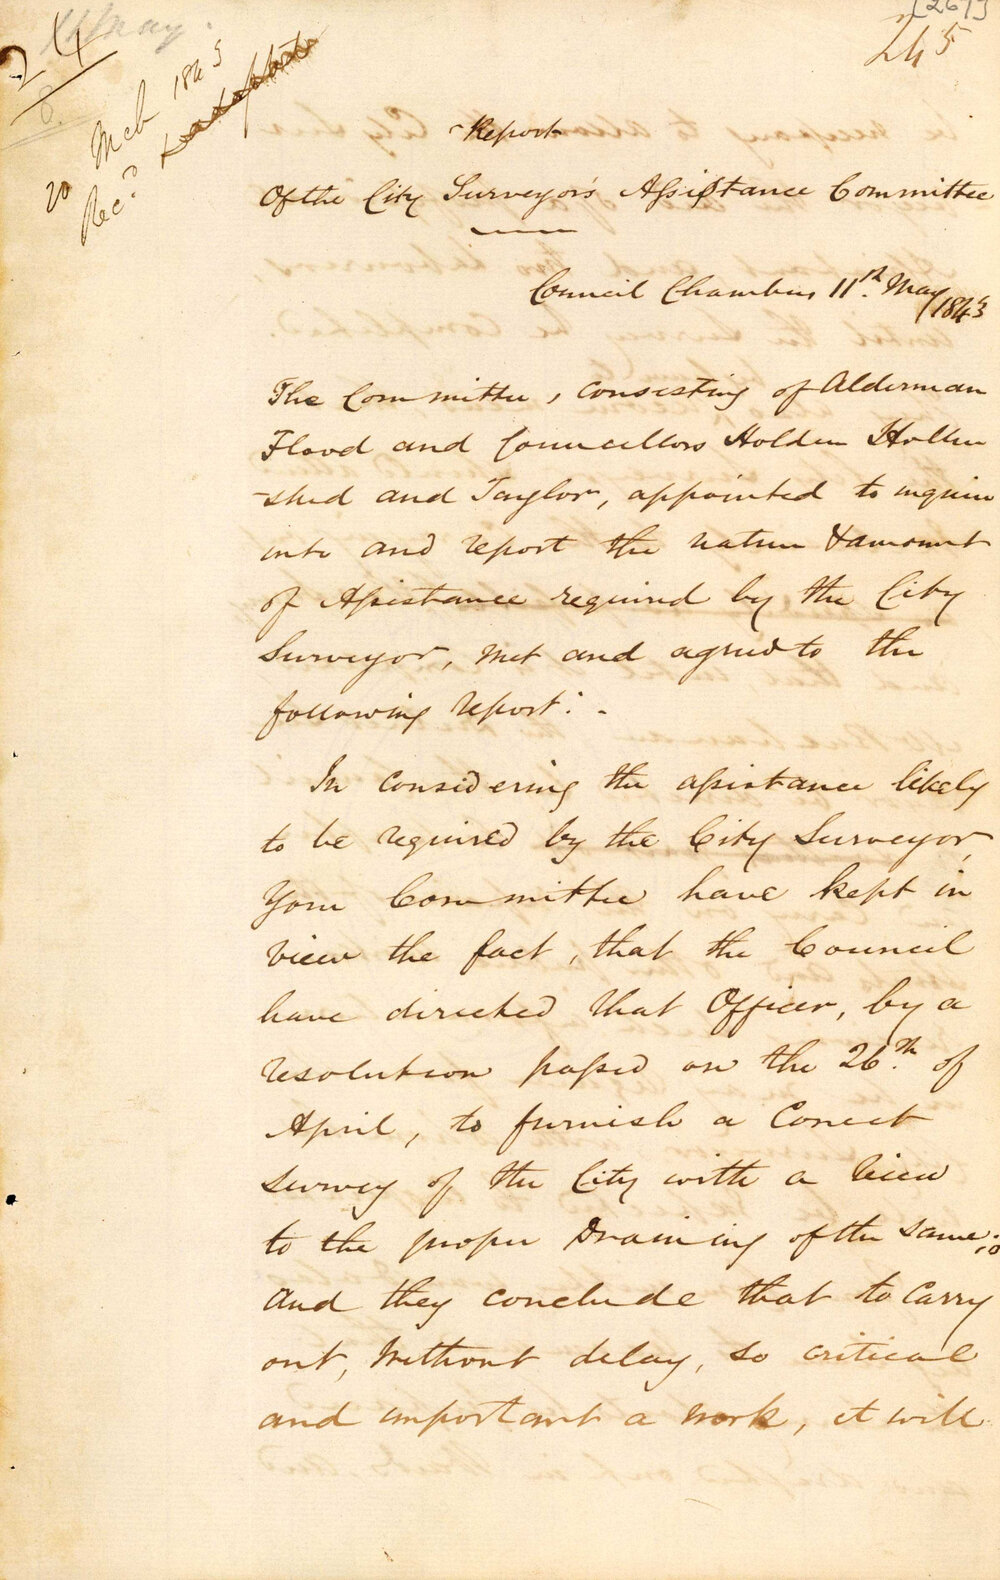 [267]
245
11 May.
24
8.
20 Mch 1843
Rec.d
Report
Of the City Surveyor's Assistance Committee
Council Chambers 11th. May 1843
The Committee, consisting of Alderman
Flood and Councillors Holden Hollin
-shed and Taylor, appointed to inquire
into and report the nature & amount
of Assistance required by the City
Surveyor, met and agreed to the
following report: -
In considering the assistance likely
to be required by the City Surveyor,
Your Committee have kept in
view the fact, that the Council
have directed that Officer, by a
resolution passed on the 26th. of
April, to furnish a Correct
survey of the City with a view
to the proper Draining of the same;
and they conclude that to carry
out, without delay, so critical
and important a work, it will